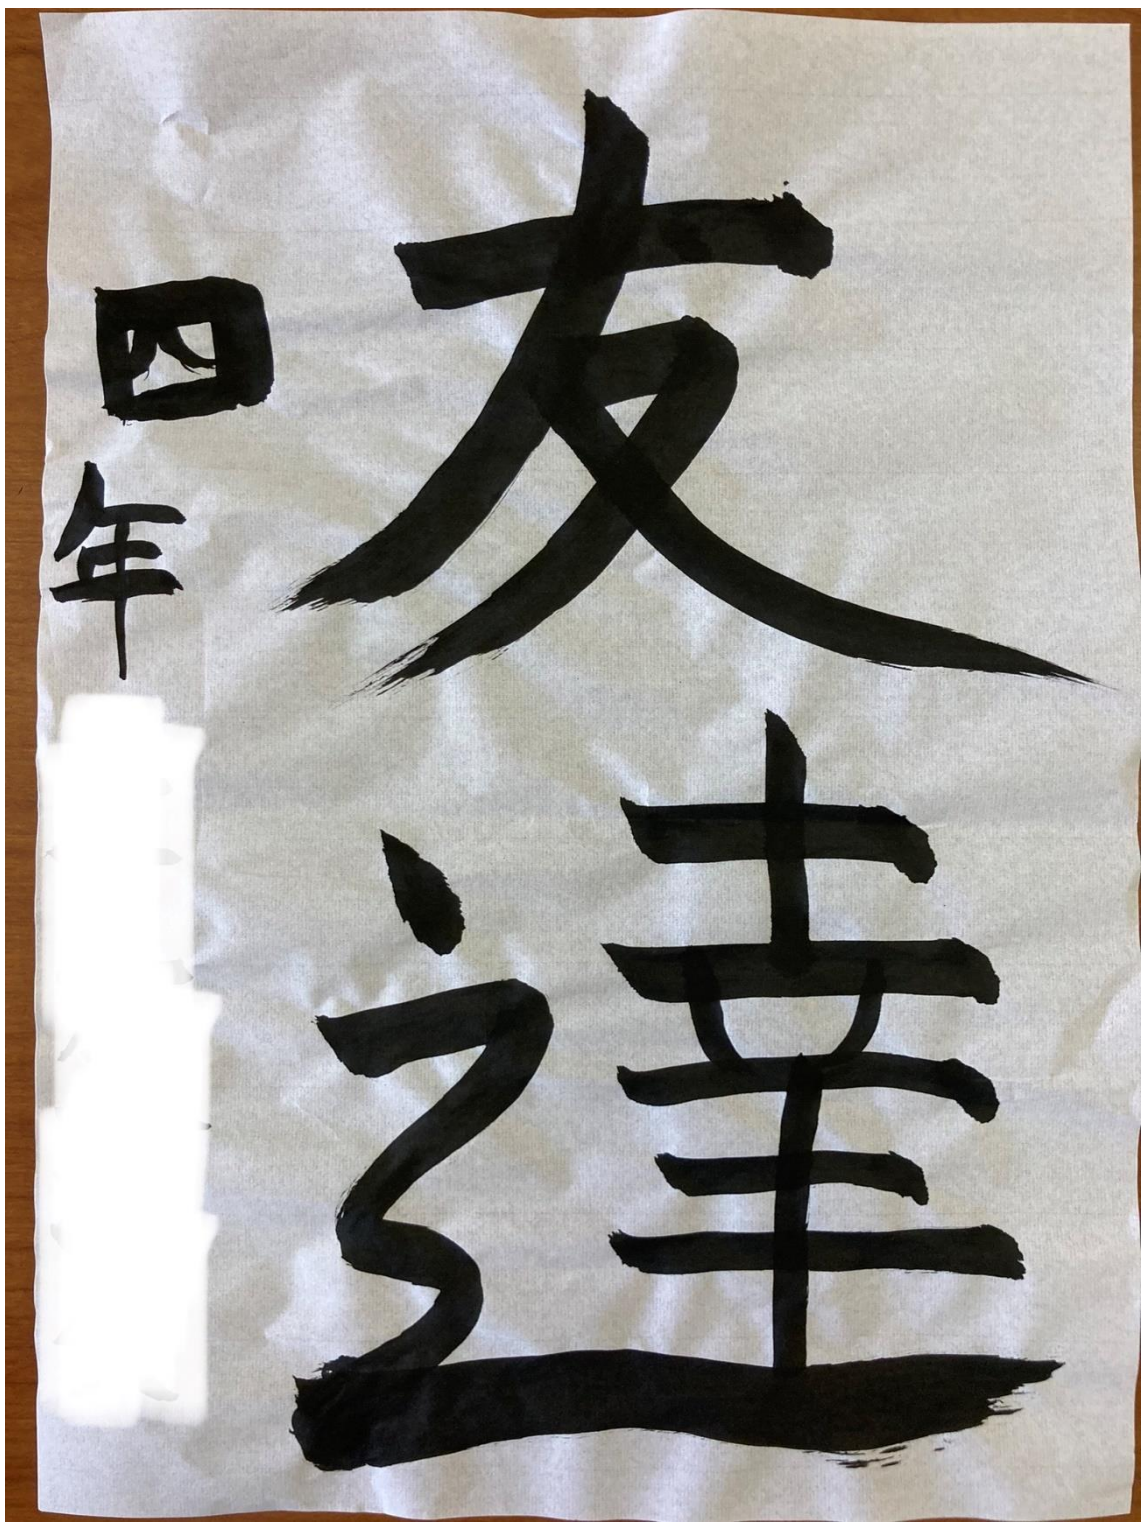 友達
四年